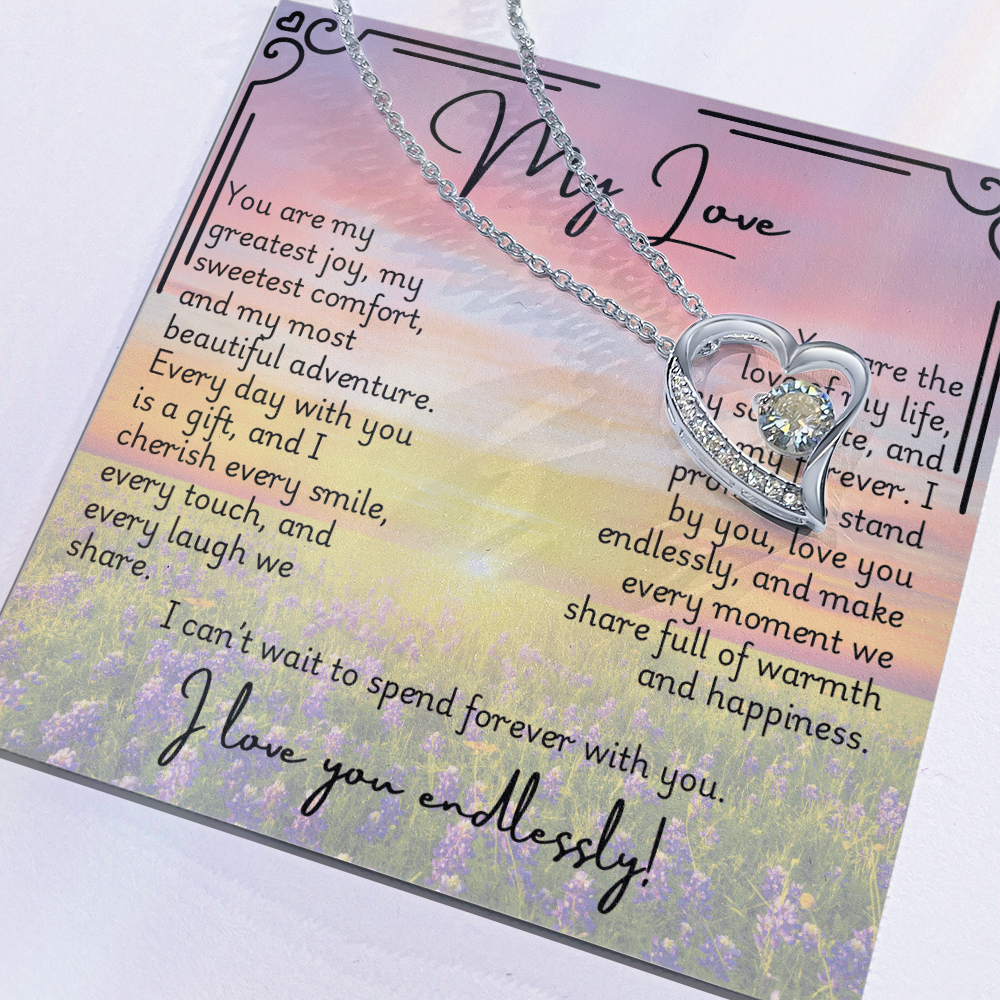 My Love
You are my
greatest joy, my
sweetest comfort,
and my most
beautiful adventure.
Every day with you
is a gift, and I
cherish every smile,
every touch, and
every laugh we
share.
are the
love of my life,
my and
my forever. I
stand
by you, love you
endlessly, and make
every moment we
share full of warmth
and happiness.
I can't wait to spend forever with you.
I love you endlessly!